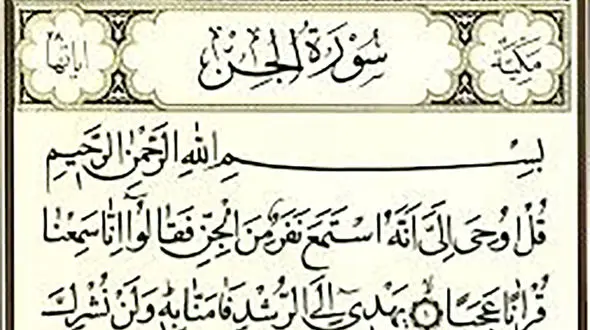 مكية سورة الجن آياتها ٢٨
بسم الله الرحمن الرحيم
قُلْ أُوحِيَ إِلَيَّ أَنَّهُ اسْتَمَعَ نَفَرٌ مِنَ الْجِنِّ فَقَالُوا إِنَّا سَمِعْنَا
قُرْآنًا عَجَبًا ١ يَهْدِي إِلَى الرُّشْدِ فَآمَنَّا بِهِ وَلَنْ نُشْرِكَ